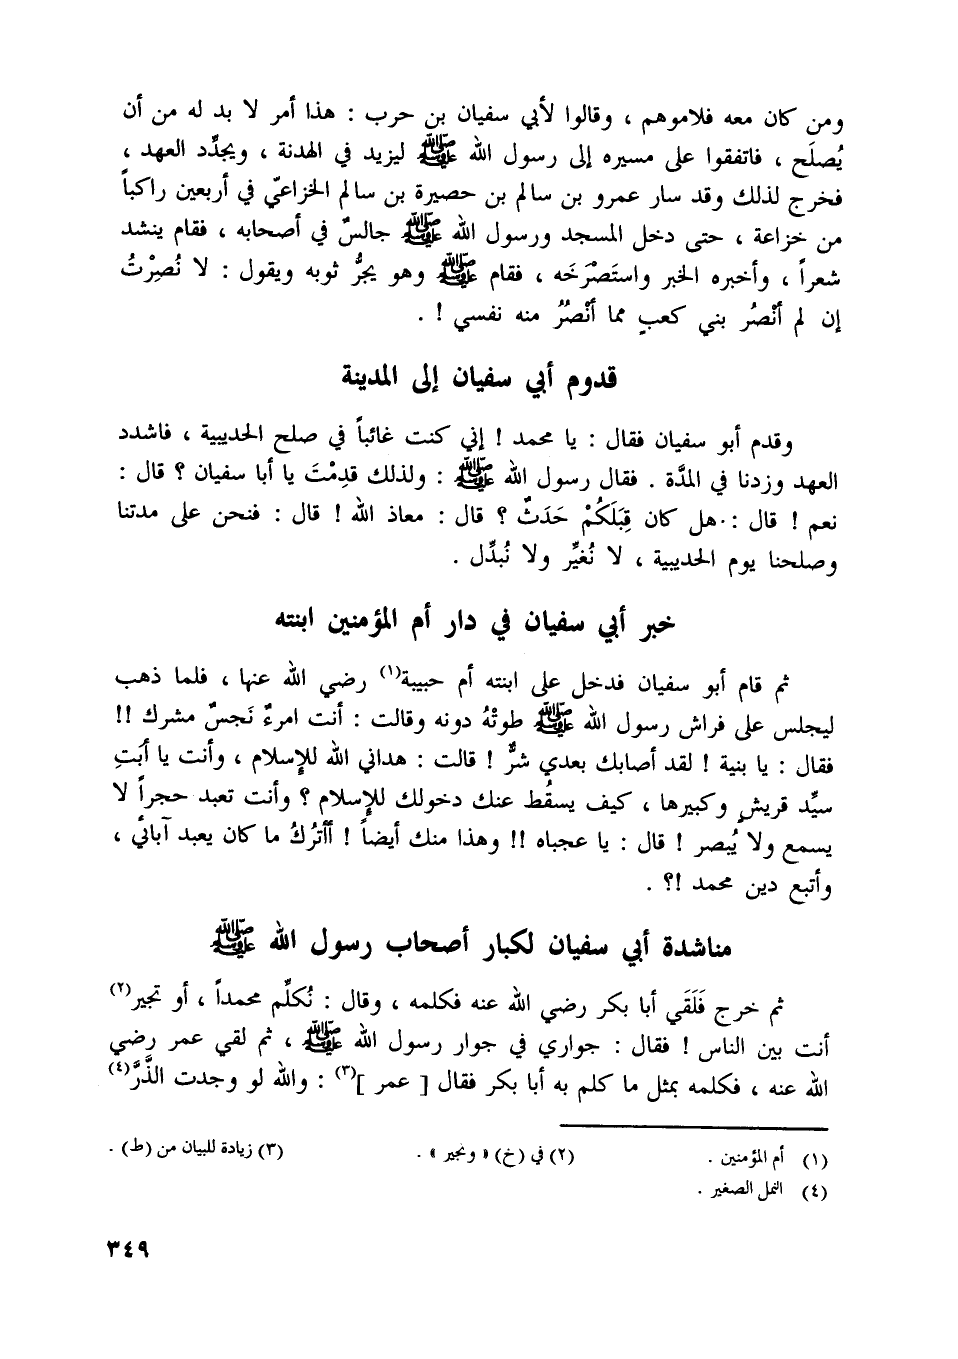 ومن كان معه فلاموهم ، وقالوا لأبي سفيان بن حرب : هذا أمر لا بد له من أن
يُصلَح ، فاتفقوا على مسيره إلى رسول الله ﷺ ليزيد في الهدنة ، ويجدِّد العهد ،
فخرج لذلك وقد سار عمرو بن سالم بن حصيرة بن سالم الخزاعيّ في أربعين راكباً
من خزاعة ، حتى دخل المسجد ورسول الله ﷺ جالسٌ في أصحابه ، فقام ينشد
شعراً ، وأخبره الخبر واستَصْرَخَه ، فقام ﷺ وهو يجرُّ ثوبه ويقول : لا نُصِرْتُ
إن لم أنْصُر بني كعبٍ مما أنْصُرُ منه نفسي ! .
قدوم أبي سفيان إلى المدينة
وقدم أبو سفيان فقال : يا محمد ! إني كنت غائباً في صلح الحديبية ، فاشدد
العهد وزدنا في المدَّة . فقال رسول الله ﷺ : ولذلك قدِمْتَ يا أبا سفيان ؟ قال :
نعم ! قال : هل كان قِبَلَكُمْ حَدَثٌ ؟ قال : معاذ الله ! قال : فنحن على مدتنا
وصلحنا يوم الحديبية ، لا نُغيِّر ولا نُبدِّل .
خبر أبي سفيان في دار أم المؤمنين ابنته
ثم قام أبو سفيان فدخل على ابنته أم حبيبة(١) رضي الله عنها ، فلما ذهب
ليجلس على فراش رسول الله ﷺ طوتْهُ دونه وقالت : أنت امرءٌ نَجسٌ مشرك !!
فقال : يا بنية ! لقد أصابك بعدي شرٌّ ! قالت : هداني الله للإسلام ، وأنت يا أبَتِ
سيِّد قريشٍ وكبيرها ، كيف يسقُط عنك دخولك للإسلام ؟ وأنت تعبد حجراً لا
يسمع ولا يُبصر ! قال : يا عجباه !! وهذا منك أيضاً ! أأتركُ ما كان يعبد آبائي ،
وأتبع دين محمد !؟ .
مناشدة أبي سفيان لكبار أصحاب رسول الله ﷺ
ثم خرج فَلَقَي أبا بكر رضي الله عنه فكلمه ، وقال : نُكلِّم محمداً ، أو تجير(٢)
أنت بين الناس ! فقال : جواري في جوار رسول الله ﷺ ، ثم لقي عمر رضي
الله عنه ، فكلمه بمثل ما كلم به أبا بكر فقال [ عمر ](٣) : والله لو وجدت الذَّرَّ(٤)
(١) أم المؤمنين . (٢) في (خ) « ونجير » . (٣) زيادة للبيان من (ط) .
(٤) النمل الصغير .
٣٤٩